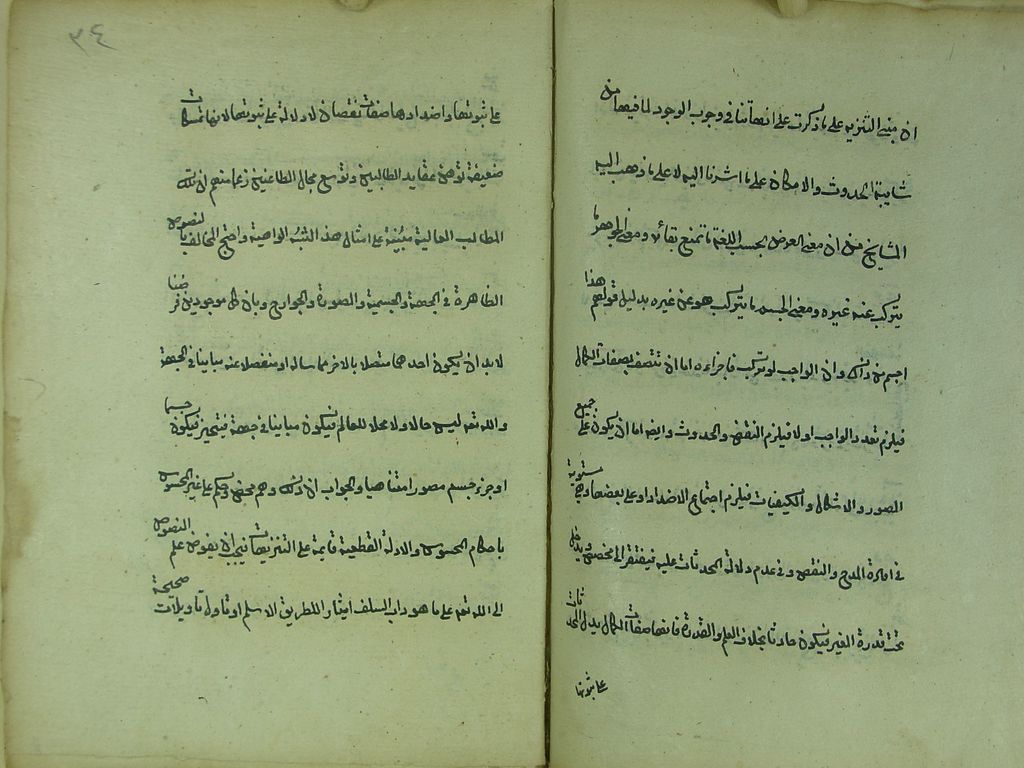 ان مبنى التنزيه على ما ذكرت على انها تنافى وجوب الوجود لما فيها من
شايبة الحدوث والامكان على ما اشرنا اليه لا على ما ذهب اليه
المشايخ من ان معنى العرض بحسب اللغة ما تمنع بقاؤه ومعنى الجوهر ما
يتركب عنه غيره ومعنى الجسم ما يتركب هو عن غيره بدليل قولهم هذا
اجسم من ذاك وان الواجب لو تركب فاجزاءه اما ان تتصف بصفات الكمال
فيلزم تعدد الواجب او لا فيلزم النقص والحدوث وايضا اما ان يكون على جميع
الصور والاشكال والكيفيات فيلزم اجتماع الاضداد او على بعضها وهى مستوية
فى افادة المدح والنقص وفى عدم دلالة المحدثات عليه فيفتقر الى مخصص ويدخل
تحت قدرة الغير فيكون حادثا بخلاف العلم والقدرة فانها صفات الكمال يدل المحدثات
على ثبوتها
٣٤
على ثبوتها واضدادها صفات نقصان لا دلالة على ثبوتها لانها تمسكات
ضعيفة توهن عقايد الطالبين وتوسع مجال الطاعنين زعما منهم ان تلك
المطالب العالية مبنية على امثال هذه الشبه الواهية واحتج المخالف بالنصوص
الظاهرة فى الجهة والجسمية والصورة والجوارح وبان كل موجودين فرضا
لا بد ان يكون احدهما متصلا بالاخر مماسا له او منفصلا عنه مباينا فى الجهة
والله تعه ليس حالا ولا محلا للعالم فيكون مباينا فى جهة فيتحيز فيكون جسما
او جزء جسم مصورا متناهيا والجواب ان ذلك وهم محض وحكم على غير المحسوس
باحكام المحسوس والادلة القطعية قايمة على التنزيهات فيجب ان يفوض علم النصوص
الى الله تعه على ما هو داب السلف ايثارا للطريق الاسلم او تاول تاويلات صحيحة